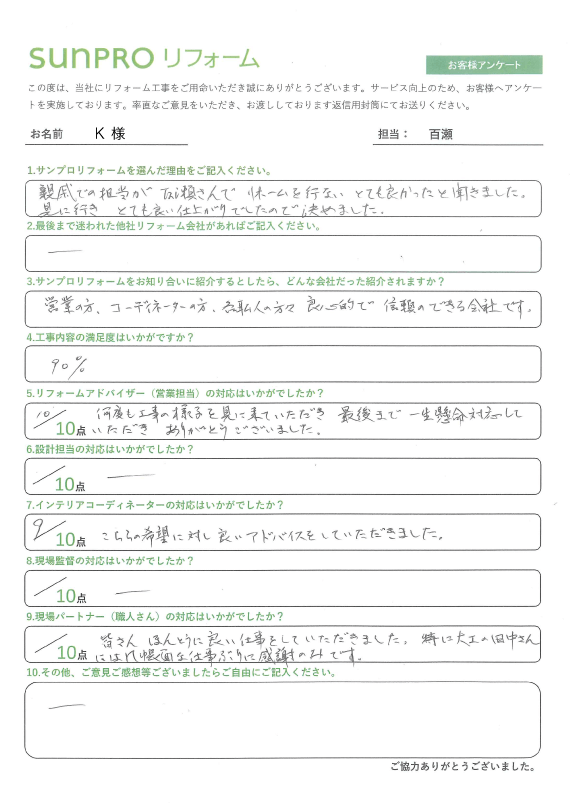 SUNPRO リフォーム
お客様アンケート
この度は、当社にリフォーム工事をご用命いただき誠にありがとうございます。サービス向上のため、お客様へアンケー
トを実施しております。率直なご意見をいただき、お渡ししております返信用封筒にてお送りください。
お名前 K 様 担当： 百瀬
1.サンプロリフォームを選んだ理由をご記入ください。
親戚での担当が 百瀬さんで リホームを行ない とても良かったと聞きました。
見に行き とても良い仕上がりでしたので決めました。
2.最後まで迷われた他社リフォーム会社があればご記入ください。
―
3.サンプロリフォームをお知り合いに紹介するとしたら、どんな会社だった紹介されますか？
営業の方、コーディネーターの方、職人の方々 良心的で 信頼のできる会社です。
4.工事内容の満足度はいかがですか？
90%
5.リフォームアドバイザー（営業担当）の対応はいかがでしたか？
10/10点 何度も工事の様子を見に来ていただき 最後まで 一生懸命対応して
いただき ありがとうございました。
6.設計担当の対応はいかがでしたか？
/10点 ―
7.インテリアコーディネーターの対応はいかがでしたか？
9/10点 こちらの希望に対し良いアドバイスをしていただきました。
8.現場監督の対応はいかがでしたか？
/10点 ―
9.現場パートナー（職人さん）の対応はいかがでしたか？
/10点 皆さん ほんとうに良い仕事をしていただきました。 特に大工の田中さん
には几帳面な仕事ぶりに感謝のみです。
10.その他、ご意見ご感想等ございましたらご自由にご記入ください。
―
ご協力ありがとうございました。